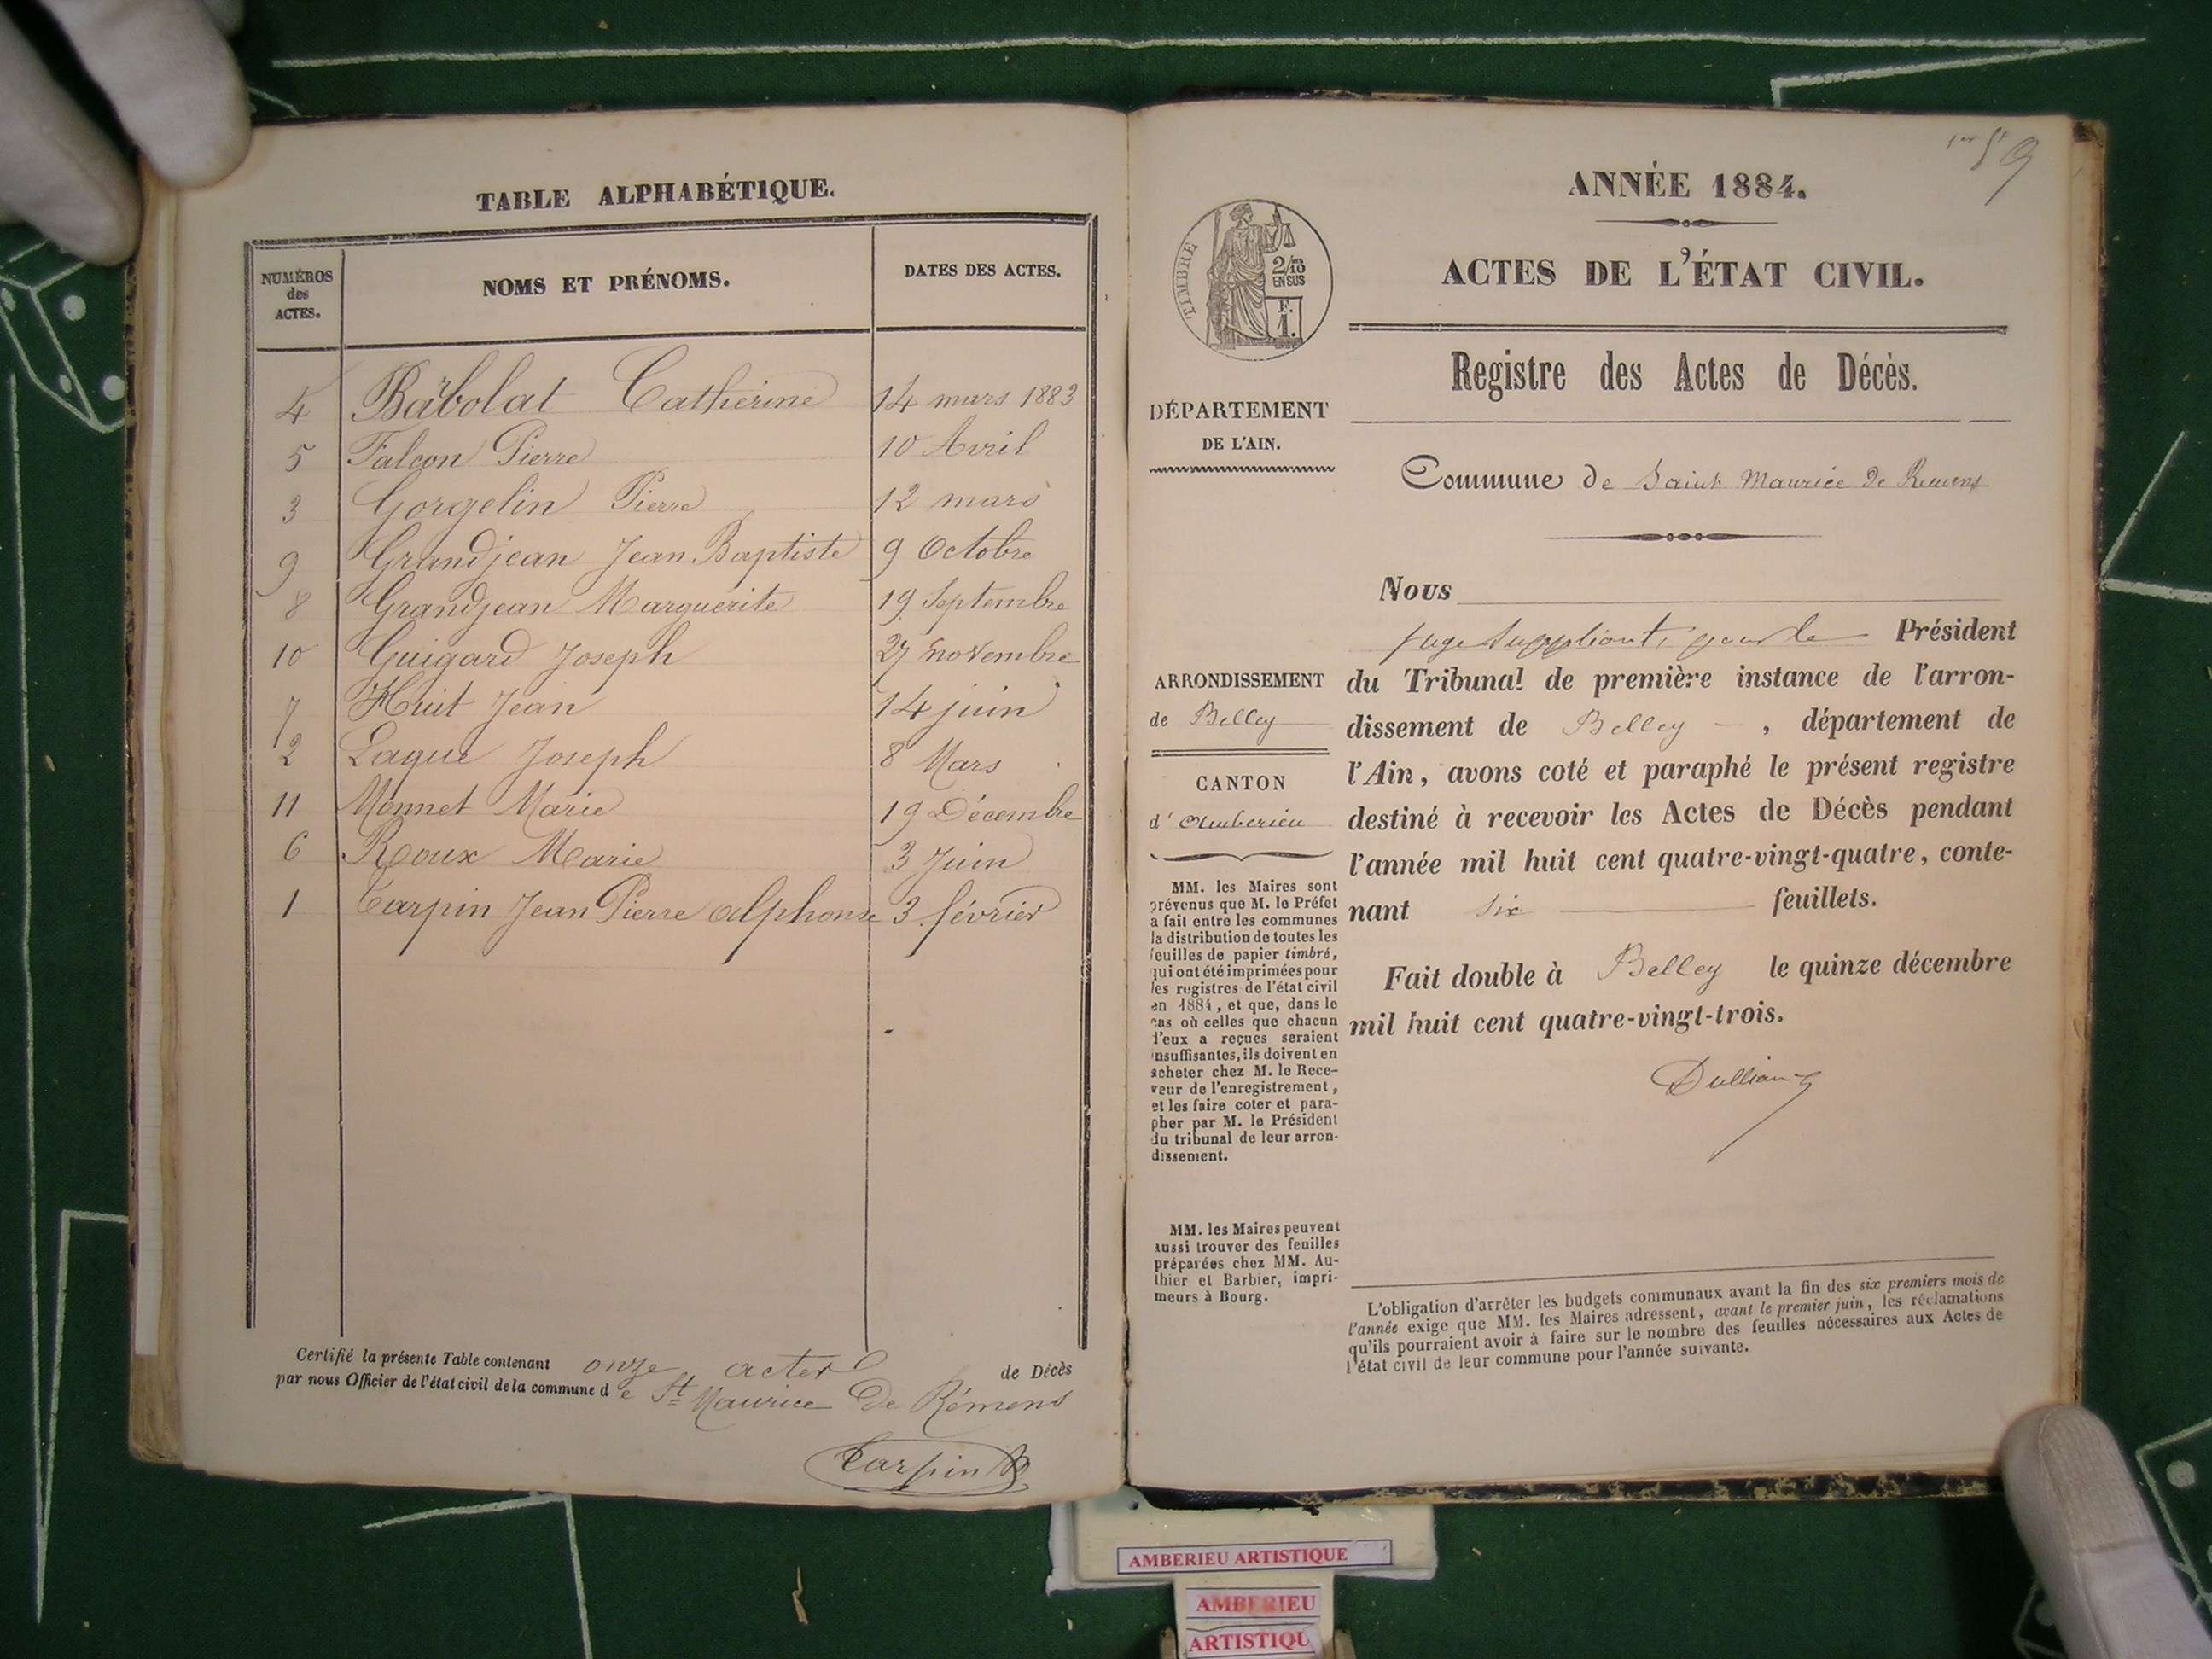 TABLE ALPHABÉTIQUE.
NUMÉROS
des
ACTES.
NOMS ET PRÉNOMS.
DATES DES ACTES.
4 Babolat Catherine 14 mars 1883
5 Falcon Pierre 10 Avril
3 Gorgelin Pierre 12 mars
9 Grandjean Jean Baptiste 9 Octobre
8 Grandjean Marguerite 19 Septembre
10 Guigard Joseph 27 novembre
7 Huit Jean 14 juin
2 Lague Joseph 8 Mars
11 Monnet Marie 19 Décembre
6 Roux Marie 3 Juin
1 Carpin Jean Pierre alphonse 3 février
Certifié la présente Table contenant onze actes de Décès
par nous Officier de l'état civil de la commune de St Maurice de Rémens
Carpin
9
ANNÉE 1884.
ACTES DE L'ÉTAT CIVIL.
TIMBRE
2/10
EN SUS
F.
1.
Registre des Actes de Décès.
DÉPARTEMENT
DE L'AIN.
Commune de Saint Maurice de Remens
Nous
juge suppléant, pour le Président
du Tribunal de première instance de l'arron-
dissement de Belley, département de
l'Ain, avons coté et paraphé le présent registre
destiné à recevoir les Actes de Décès pendant
l'année mil huit cent quatre-vingt-quatre, conte-
nant six feuillets.
Fait double à Belley le quinze décembre
mil huit cent quatre-vingt-trois.
ARRONDISSEMENT
de Belley
CANTON
d'amberieu
MM. les Maires sont
prévenus que M. le Préfet
a fait entre les communes
la distribution de toutes les
feuilles de papier timbré,
qui ont été imprimées pour
les registres de l'état civil
en 1884, et que, dans le
cas où celles que chacun
d'eux a reçues seraient
insuffisantes, ils doivent en
acheter chez M. le Rece-
veur de l'enregistrement,
et les faire coter et para-
pher par M. le Président
du tribunal de leur arron-
dissement.
MM. les Maires peuvent
aussi trouver des feuilles
préparées chez MM. Au-
thier et Barbier, impri-
meurs à Bourg.
L'obligation d'arrêter les budgets communaux avant la fin des six premiers mois de
l'année exige que MM. les Maires adressent, avant le premier juin, les réclamations
qu'ils pourraient avoir à faire sur le nombre des feuilles nécessaires aux Actes de
l'état civil de leur commune pour l'année suivante.
AMBERIEU ARTISTIQUE
AMBERIEU
ARTISTIQU